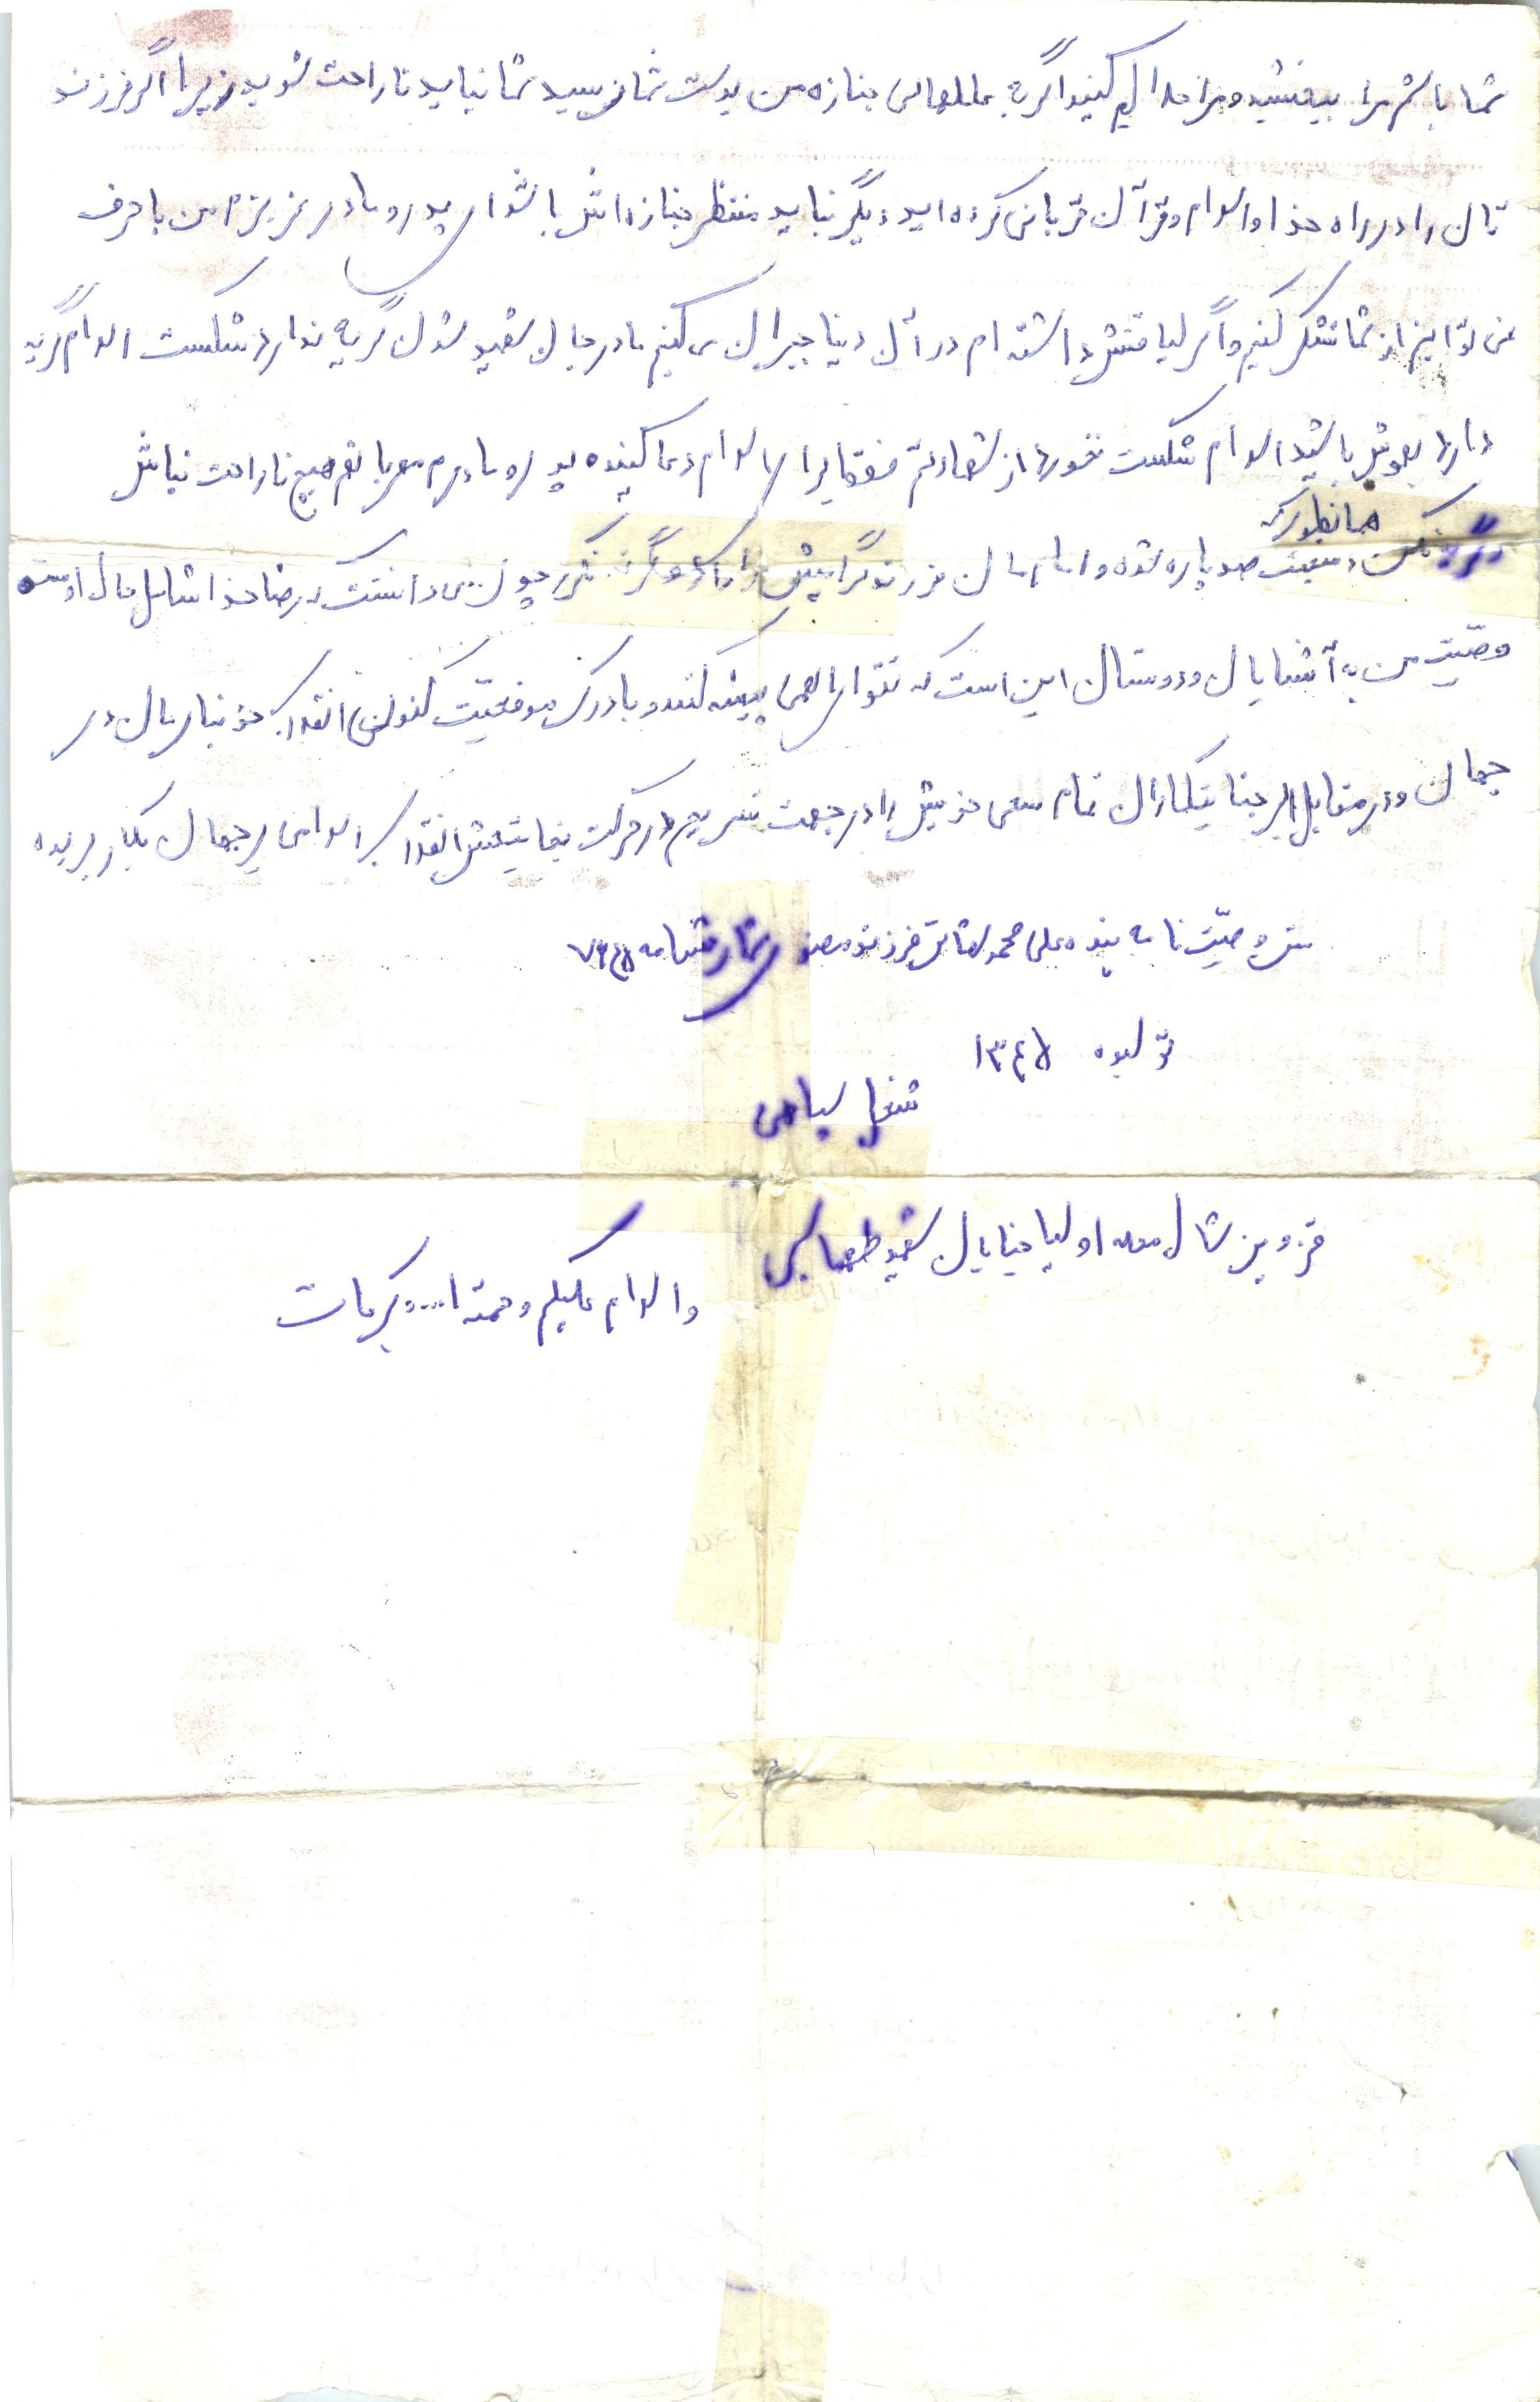 شما باشم مرا ببخشید و مرا حلالم کنید اگر به جنازه من بدست شما نرسید شما نباید ناراحت شوید زیرا اگر فرزند
تان را در راه خدا و اسلام و قرآن قربانی کرده اید دیگر نباید منتظر جنازه اش باشد ای پدر و مادر عزیزم من با حرف
نمی توانم از شما تشکر کنم و اگر لیاقتش داشته ام در آن دنیا جبران می کنم مادر جان شهید شدن گریه ندارد شکست اسلام گریه
دارد بهوش باشید اسلام شکست نخورد از شهادتم فقط برای اسلام دعا کنید پدر و مادرم مهربانم هیچ ناراحت نباش
همانطور که
گریه نکن صد پاره شده و امام مان فرزند گرامیش را داد و گریه نکرد چون می دانست که رضا خدا شامل حال اوست
وصیت من به آشنایان و دوستان این است که تقوا الهی پیشه کنند و با درک موقعیت کنونی انقلاب خونبارمان در
جهان و در مقابل ابر جنایتکاران تمام سعی خویش را در جهت تسریع در حرکت انقلاب اسلامی در جهان بکار برید
متن وصیت نامه بنده علی محمد فرزند شماره شناسنامه ۷۶۴۵
تولد ۱۳۴۵
شغل سپاهی
قزوین شال محله اولیا خیابان شهید
والسلام علیکم و رحمته ا... و برکات